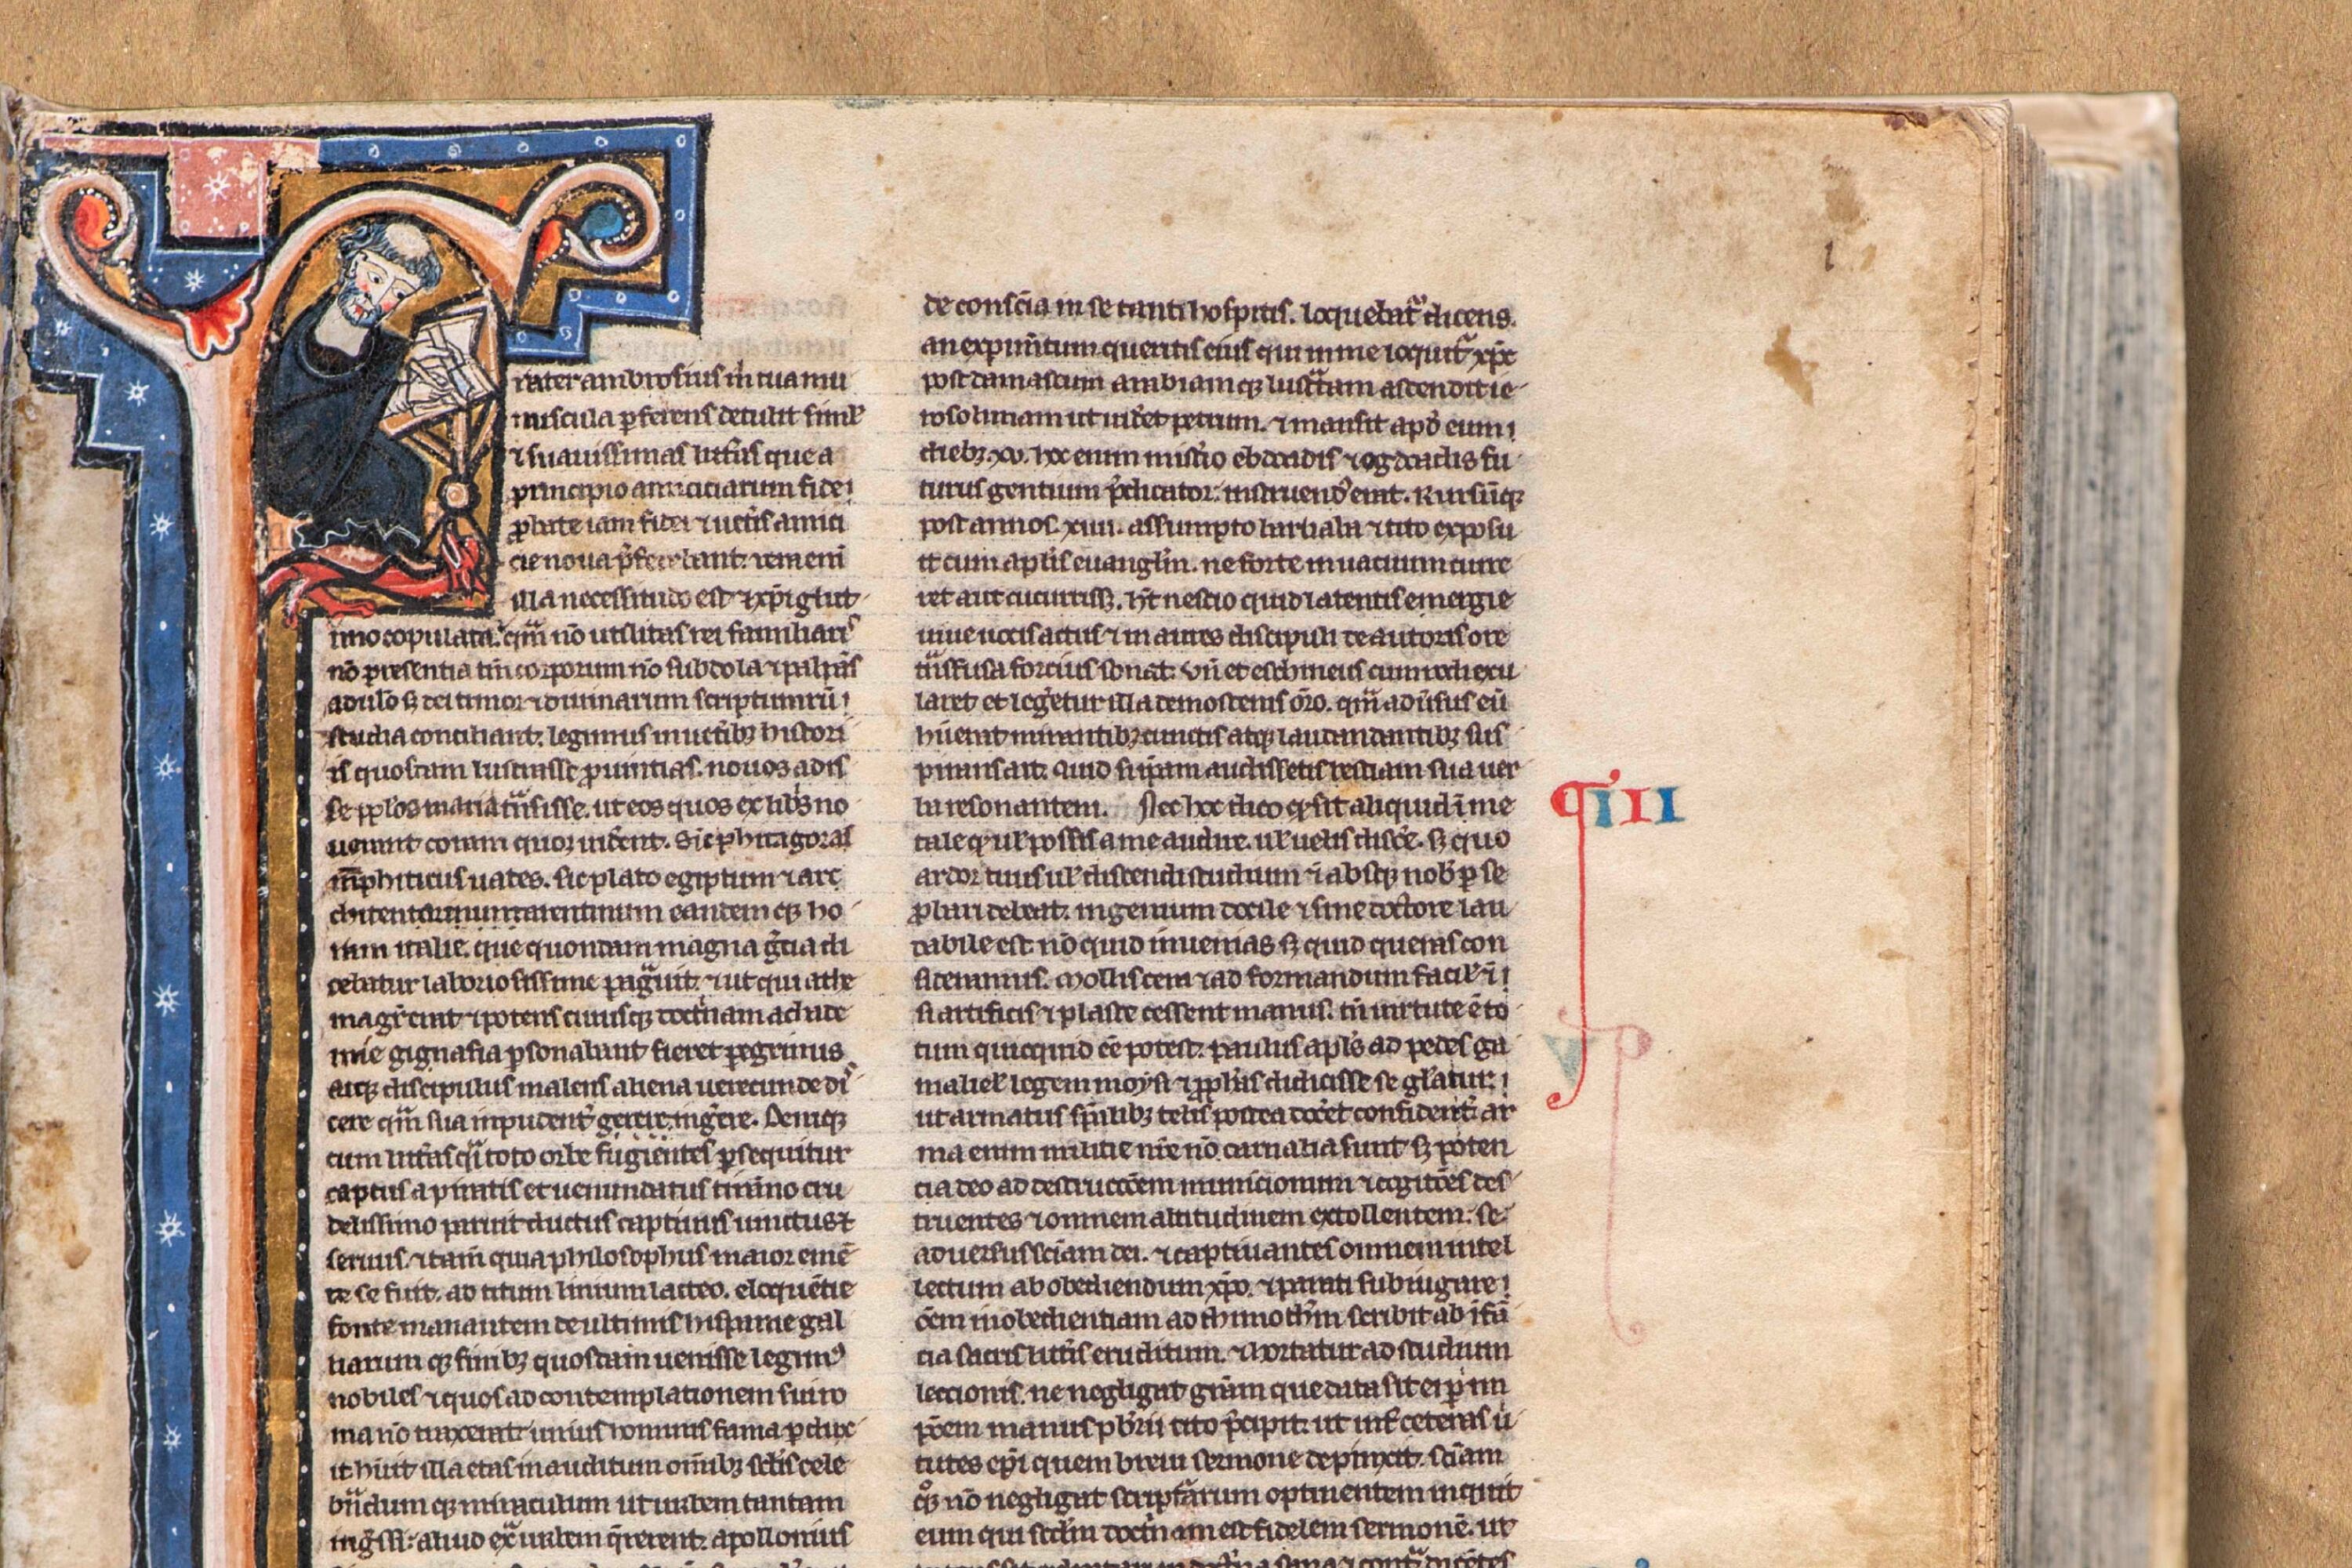 Frater ambrosius m̄ tua mu
nuscula ꝑferens detulit simł
⁊ suauissimas litt̃as que a
principio amiciciarum fidei
ꝓbate iam fidei ⁊ uet̃is amici
cie noua p̃ferebant. uera eni̅
illa necessitudo est ⁊ xp̃i glut
ino copulata. qm̅ nō utilitas rei familiaris
nō presentia tm̅ corporum nō subdola ⁊ palpãs
adulō sꝫ dei timor ⁊ diuinarum scripturarū
studia conciliant. legimus in uet̃ibꝫ histori
is quosdam lustrasse ꝓuintias. nouos adis
se ppl̃os maria tñsisse. ut eos quos ex libris no
uerant coram quoqꝫ uiderent. Sic phitagoras
mēphiticus uates. sic plato egiptum ⁊ arc
hitentarentinum eandem qꝫ ho
ram italie. que quondam magna g̃cia di
cebatur laboriosissime pag̃uit. ⁊ ut qui athe
mag̃r erat ⁊ potens cuiusqꝫ doct̃nam achade
mie gignasia ꝑsonabant fieret peregrinus
atqꝫ discipulus malens aliena uerecunde di
cere qm̃ sua inpudent̃ ingerere. Deniqꝫ
cum litt̃as q̃i toto orbe fugientes ꝑsequitur
captus a piratis et uenundatus tirāno cru
delissimo paruit ductus captiuus uinctus ⁊
seruus. ⁊ tam̄ quia philosophus maior emē
te se fuit. ad titum liuium lacteo. eloquētie
fonte manantem de ultimis hispanie gal
liarum qꝫ finibꝫ quosdam uenisse legimꝰ
nobiles ⁊ quos ad contemplationem sui ro
ma nō traxerat unius hominis fama ꝑdux
it h̃uit illa etas inauditum om̄ibꝫ scl̃is cele
bñdum qꝫ miraculum ut urbem tantam
ing̃ssi aliud ext̃ urbem q̃rerent. apollonius
de consc̄ia in se tanti hospitis. loquebat̃ dicens.
an exꝑim̃tum queritis eius qui in me loquit̃ xp̃c
post damascum arabiam qꝫ lust̃tam ascendit ie
rosolimam ut uid̃et petrum. ⁊ mansit apđ eum
diebꝫ .xv. hoc enim mist̃io ebdoadis ⁊ ogdoadis fu
turus gentium p̃dicator instruend̃ erat. Rursūqꝫ
post annos .xiiii. assumpto barnaba ⁊ tito exposu
it cum apl̃is euanglīm. ne forte in uacuum curre
ret aut cucurrissꝫ. h̃t nescio quid latentis energie
uiue uocis actus ⁊ in aures discipuli de autoris ore
tñsfusa forcius sonat. Vñ et eschineus cum rodi exu
laret et leg̃etur illa demostenis ōro. qm̃ adũsus eū
h̃uerat mirantibꝫ cunctis atqꝫ laudandantibꝫ sus
pirans ait. quid si ip̃am audissetis bestiam sua uer
ba resonantem. Nec hoc dico qꝫ sit aliquid ī me
tale qꝫ uł possis a me audire. uł uelis disc̃e. sꝫ quo
ardor tuus uł discendi studium ⁊ absqꝫ nob̃ per se
ꝓbari debeat. ingenium docile ⁊ sine doctore lau
dabile est. nō quid inuenias sꝫ quid queras con
sideramus. Mollis cera ⁊ ad formandum facił ē
si artificis ⁊ plaste cessent manus. tñ uirtute ē to
tum quicquid eē potest. paulus apl̃s ad pedes ga
maliel legem moysi ⁊ ꝓph̃as didicisse se gl̃atur.
ut armatus sp̃ualibꝫ telis postea doc̃et confident̃. ar
ma enim militie nr̃e nō carnalia sunt sꝫ poten
cia deo ad destrucc̃oem municionum ⁊ cogitc̃oes des
truentes ⁊ omnem altitudinem extollentem se
aduersus sc̄iam dei. ⁊ captiuantes omnem intel
lectum ab obediendum xp̃o. ⁊ parati subiugare
ōem inobedientiam ad thimoth̃m scribit ab īfā
cia sacris litt̃is eruditum. ⁊ hortatur ad studium
leccionis. ne negligat gr̃am que data sit ei ꝑ im
poc̃em manus pb̃rii tito p̃cipit. ut int̃ ceteras ũ
tutes ep̃i quem breui sermone depinxit. sc̄iam
qꝫ nō negligat scriptãrum optinentem inquit
eum qui scd̃m doct̃nam est fidelem sermonē. ut
ꝗIII